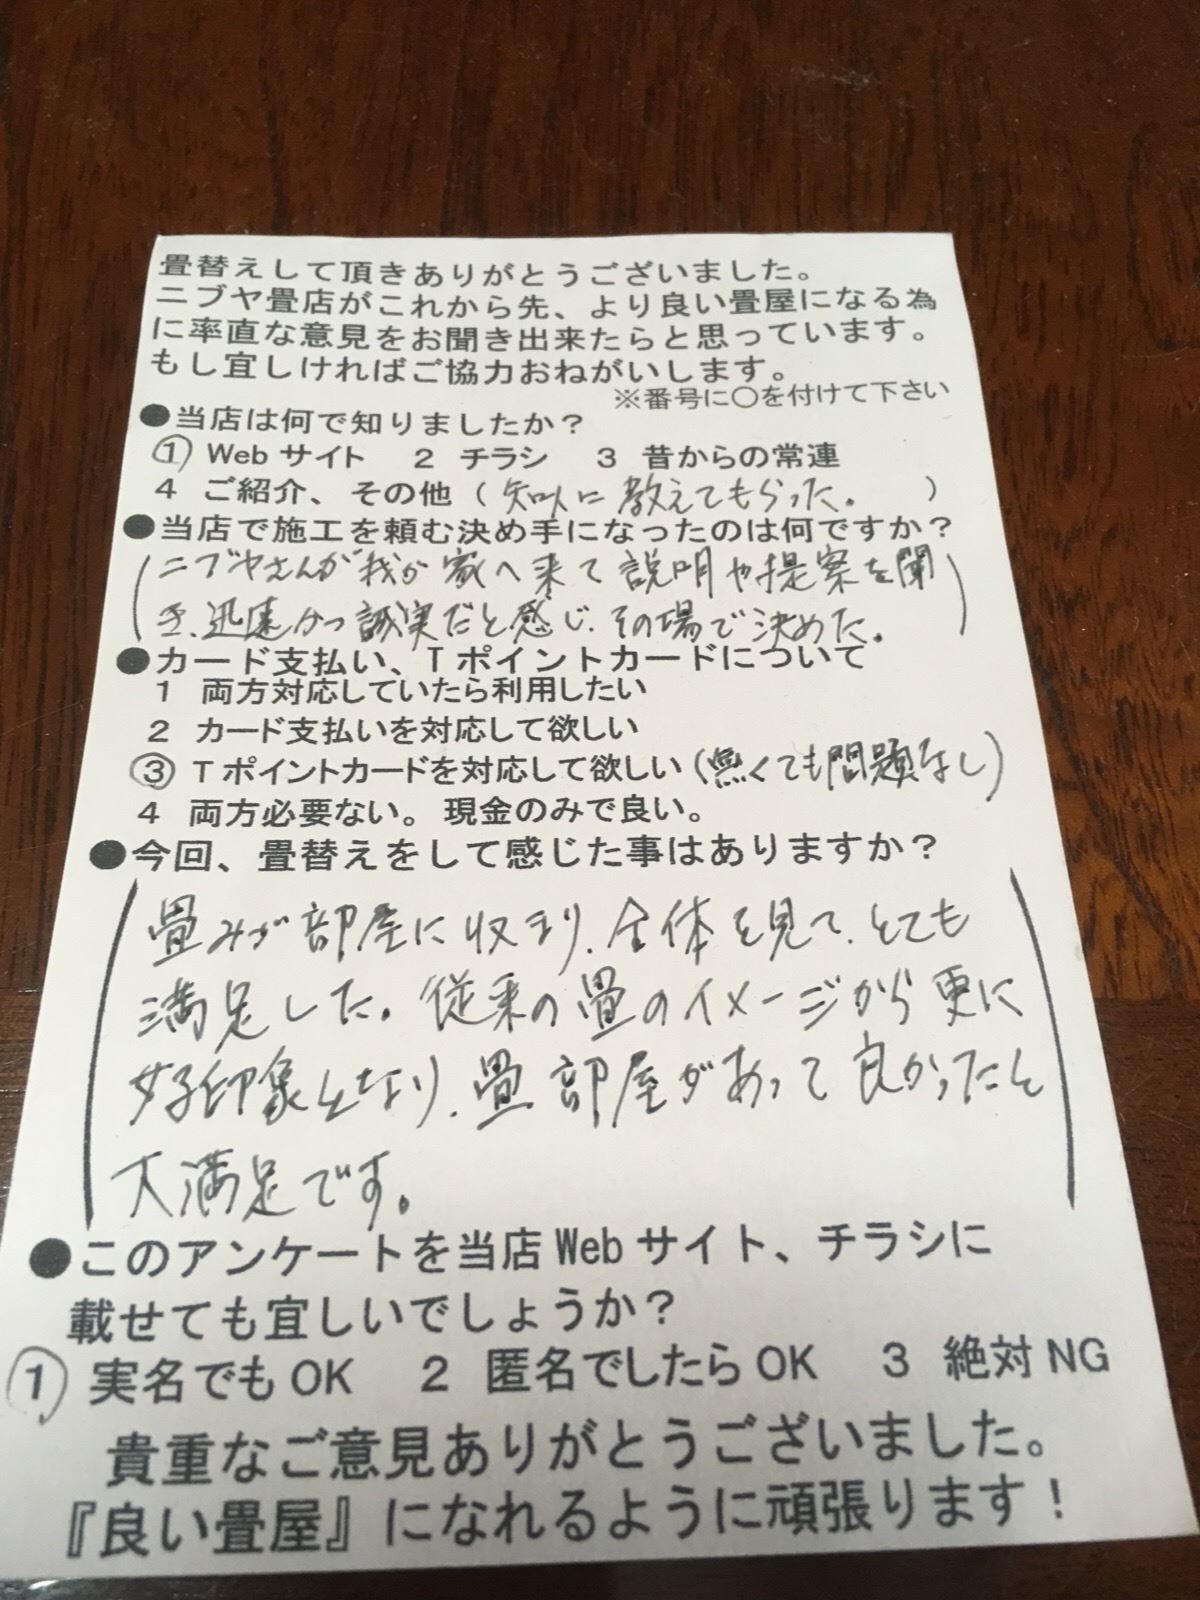 畳替えして頂きありがとうございました。
ニブヤ畳店がこれから先、より良い畳屋になる為
に率直な意見をお聞き出来たらと思っています。
もし宜しければご協力おねがいします。
※番号に○を付けて下さい
●当店は何で知りましたか?
① Webサイト 2 チラシ 3 昔からの常連
4 ご紹介、その他(知人に教えてもらった。)
●当店で施工を頼む決め手になったのは何ですか?
(ニブヤさんが我が家へ来て説明や提案を聞
き、迅速かつ誠実だと感じ、その場で決めた。)
●カード支払い、Tポイントカードについて
1 両方対応していたら利用したい
2 カード支払いを対応して欲しい
③ Tポイントカードを対応して欲しい(無くても問題なし)
4 両方必要ない。現金のみで良い。
●今回、畳替えをして感じた事はありますか?
(畳みが部屋に収まり、全体を見て、とても
満足した。従来の畳のイメージから更に
好印象となり、畳部屋があって良かったと
大満足です。)
●このアンケートを当店Webサイト、チラシに
載せても宜しいでしょうか?
① 実名でもOK 2 匿名でしたらOK 3 絶対NG
貴重なご意見ありがとうございました。
『良い畳屋』になれるように頑張ります!